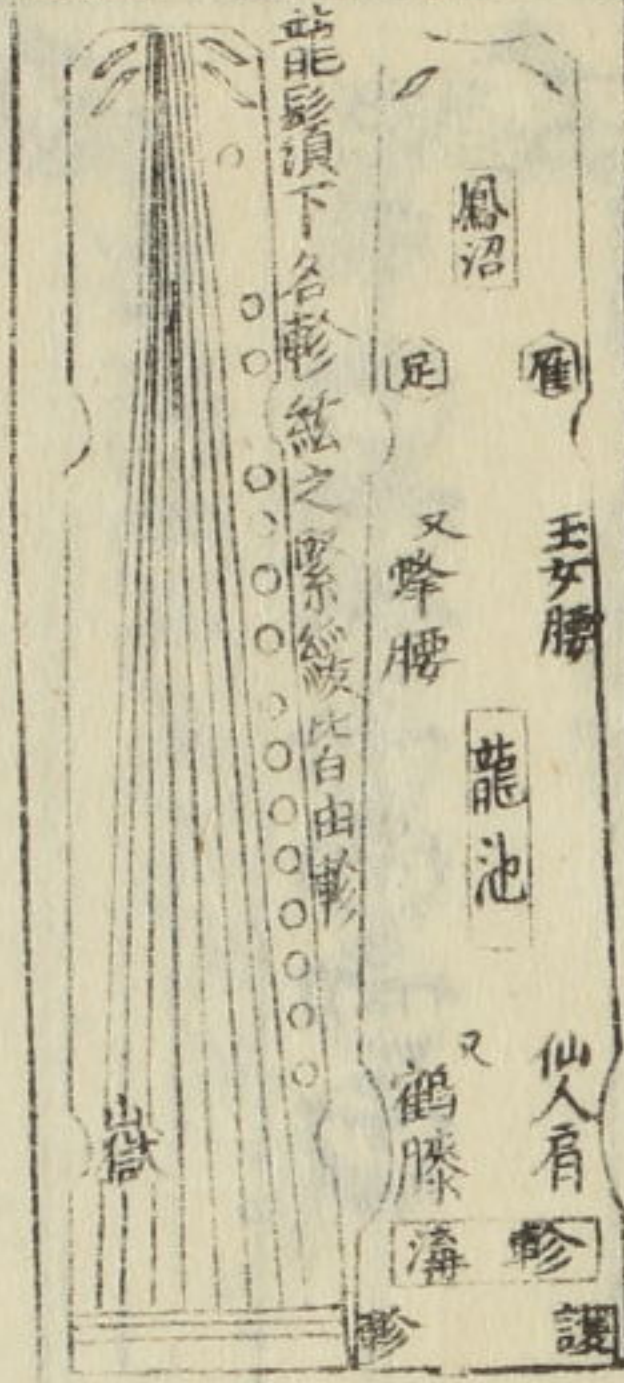 鳳沼
雁足
玉女腰
又蜂腰
龍池
仙人肩
又鶴膝
軫溝
護軫
龍湏下名軫絃之緊緩皆由軫
嶽